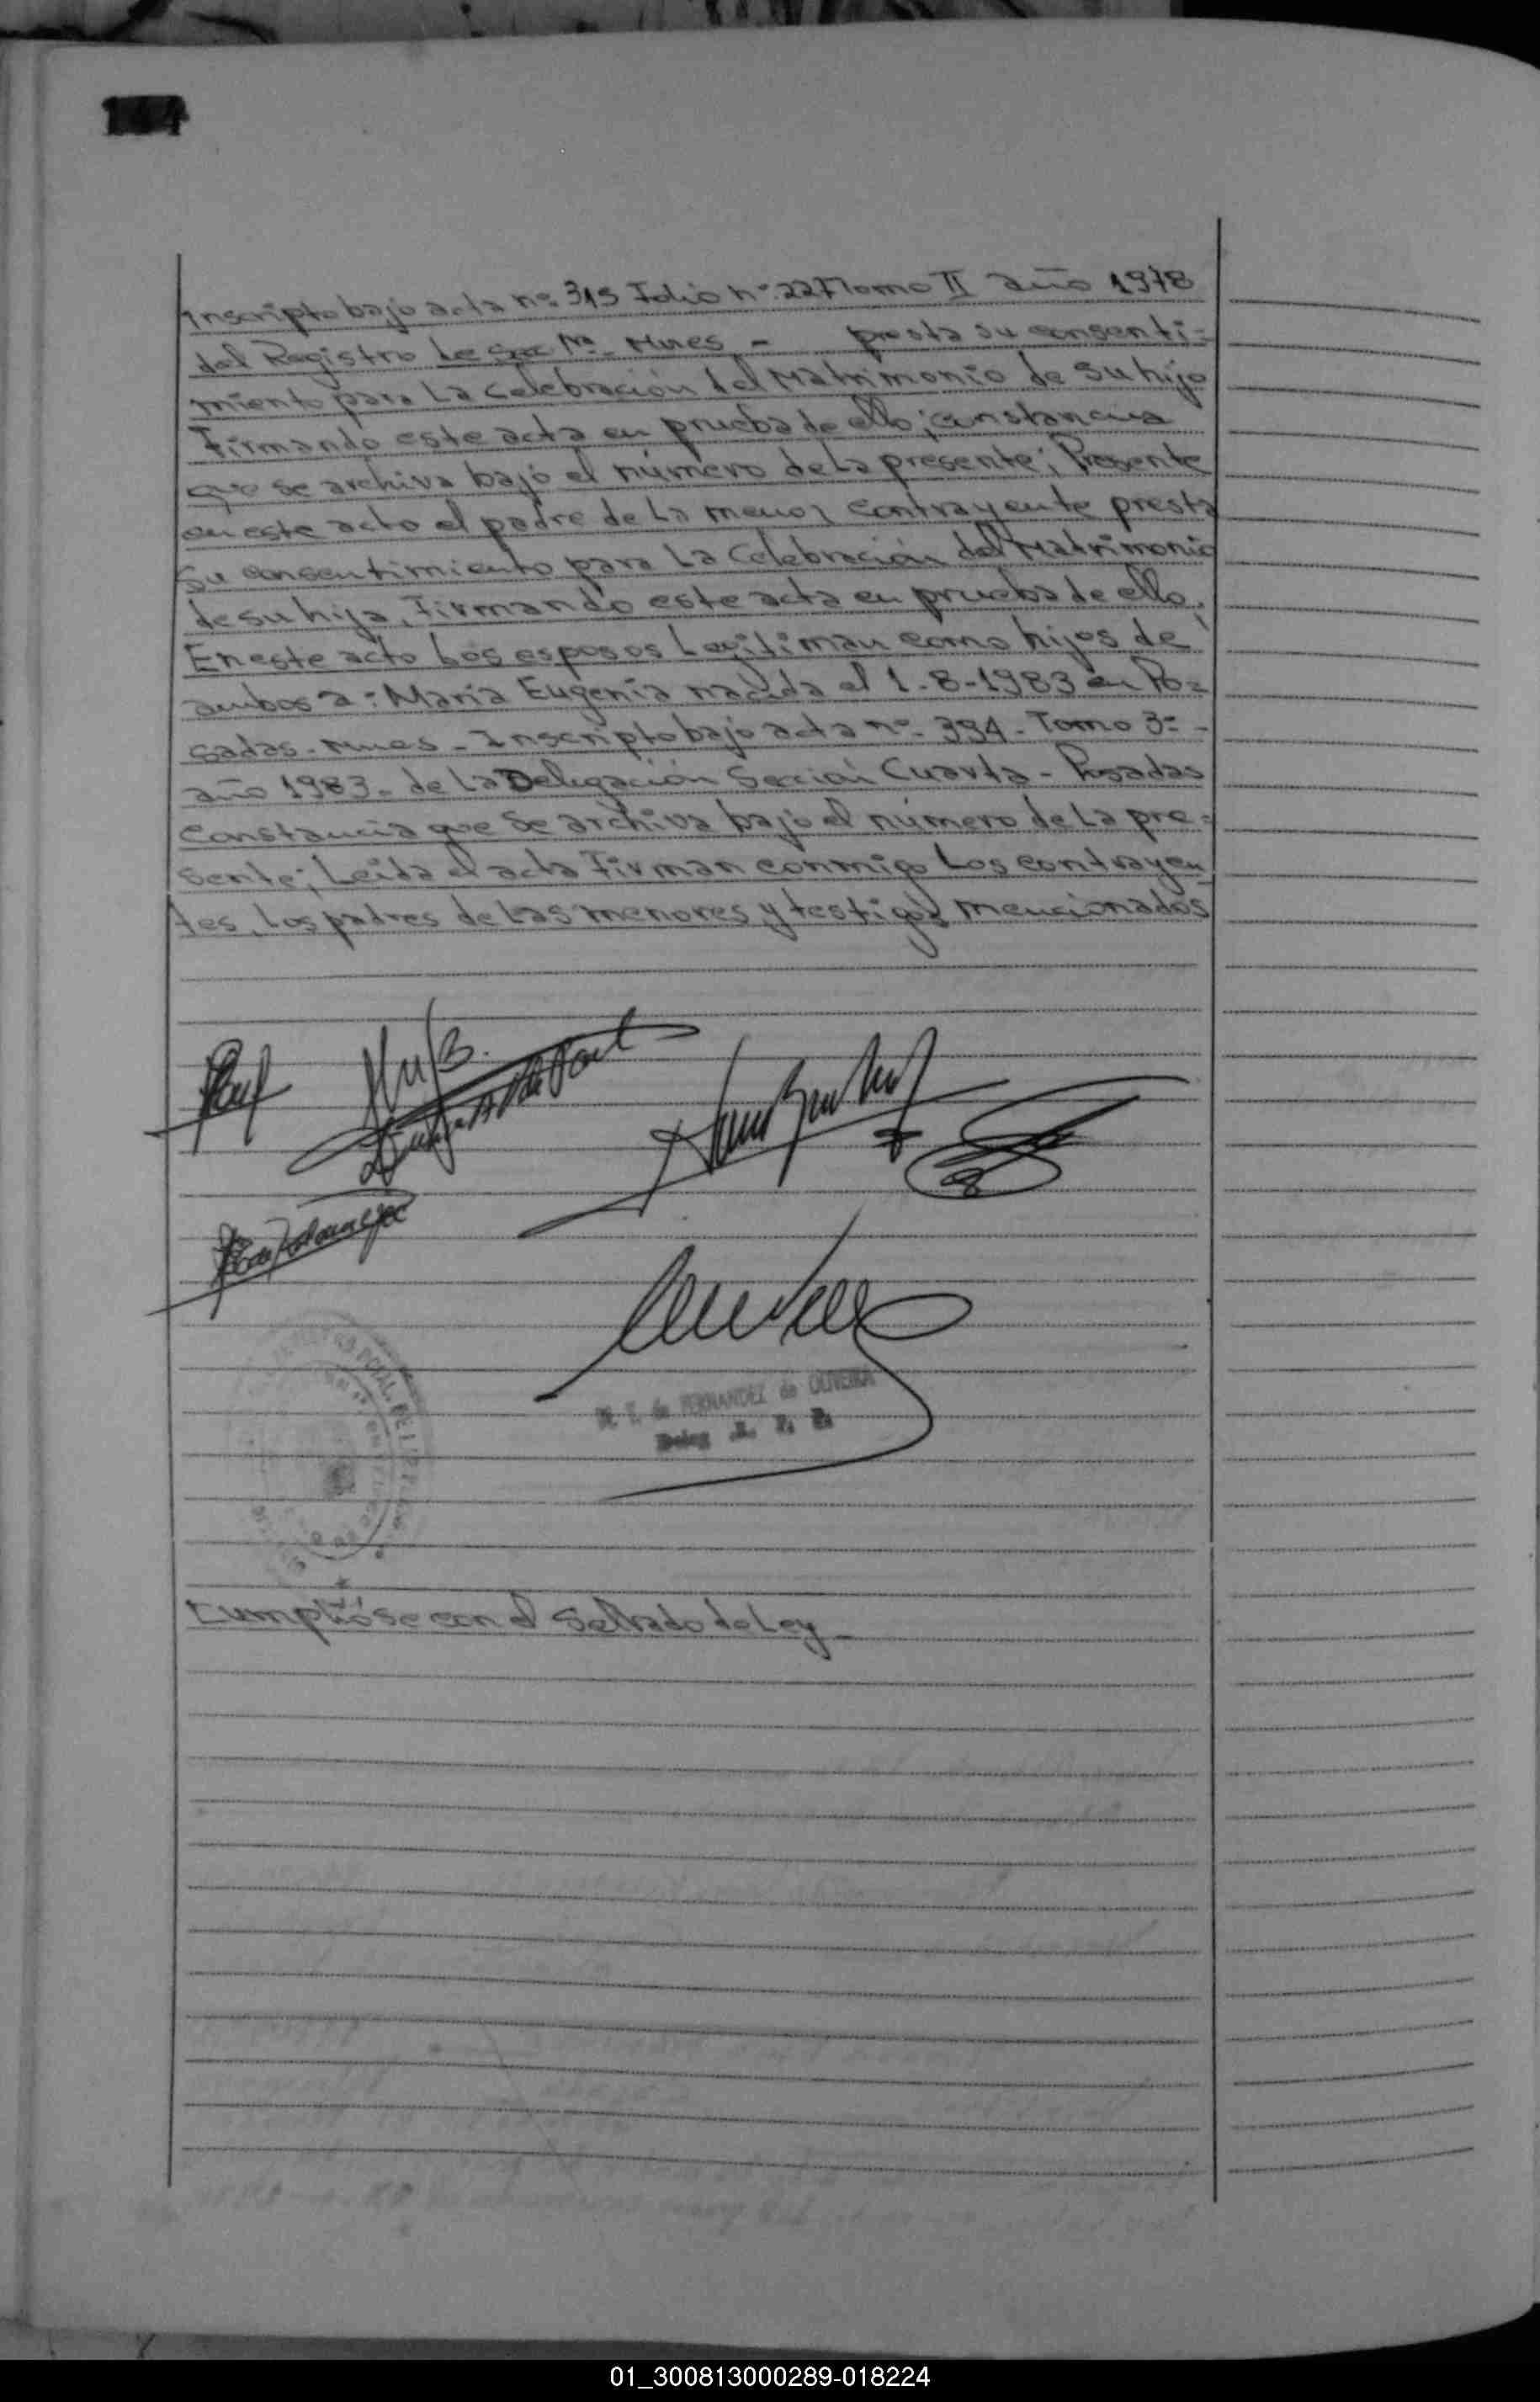 144
Inscripto bajo acta nº 315 Folio nº 227 Tomo II año 1978
del Registro 1e Sec Nª Mnes - presta su consenti=
miento para La Celebración del Matrimonio de su hijo
Firmando este acta en prueba de ello; constancia
que se archiva bajo el número de La presente; Presente
en este acto el padre de La menor contrayente presta
su consentimiento para La Celebración del Matrimonio
de su hija, Firmando este acta en prueba de ello.
En este acto Los esposos Legitiman como hijos de
ambos a: María Eugenia nacida el 1-8-1983 en Po=
sadas. Mnes - Inscripto bajo acta nº 394 - Tomo 3º -
año 1983. de La Delegación Sección Cuarta - Posadas
Constancia que se archiva bajo el número de La pre=
sente; Leida el acta Firman conmigo Los contrayen
tes, Los padres de Las menores y testigos mencionados
de FERNANDEZ de OLIVEIRA
Deleg
Cumplióse con el Sellado de Ley -
01_300813000289-018224